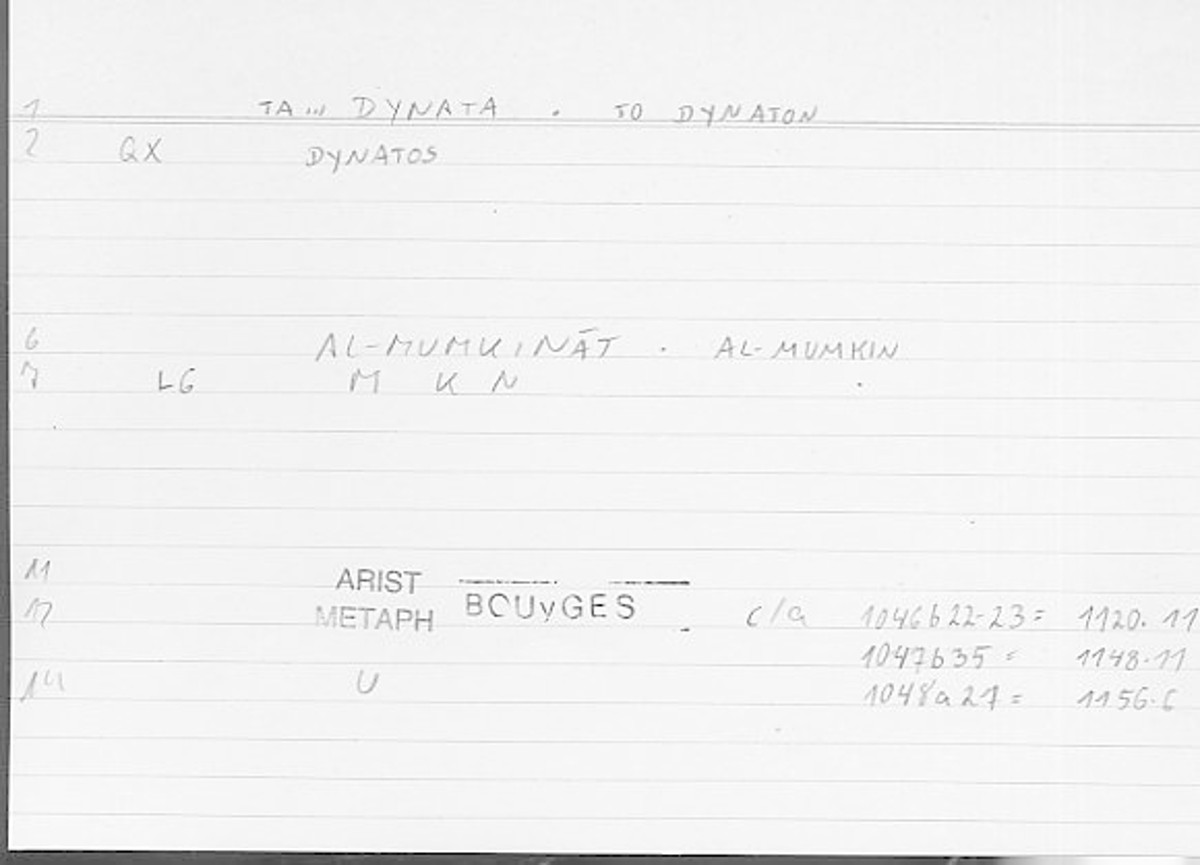 1 TA... DYNATA . TO DYNATON
2 QX DYNATOS
6 AL-MUMKINĀT . AL-MUMKIN
7 LG M K N
11 ARIST
12 METAPH BOUyGES c/a 1046b22-23= 1120.11
1047b35 = 1148.11
14 U 1048a27= 1156.6